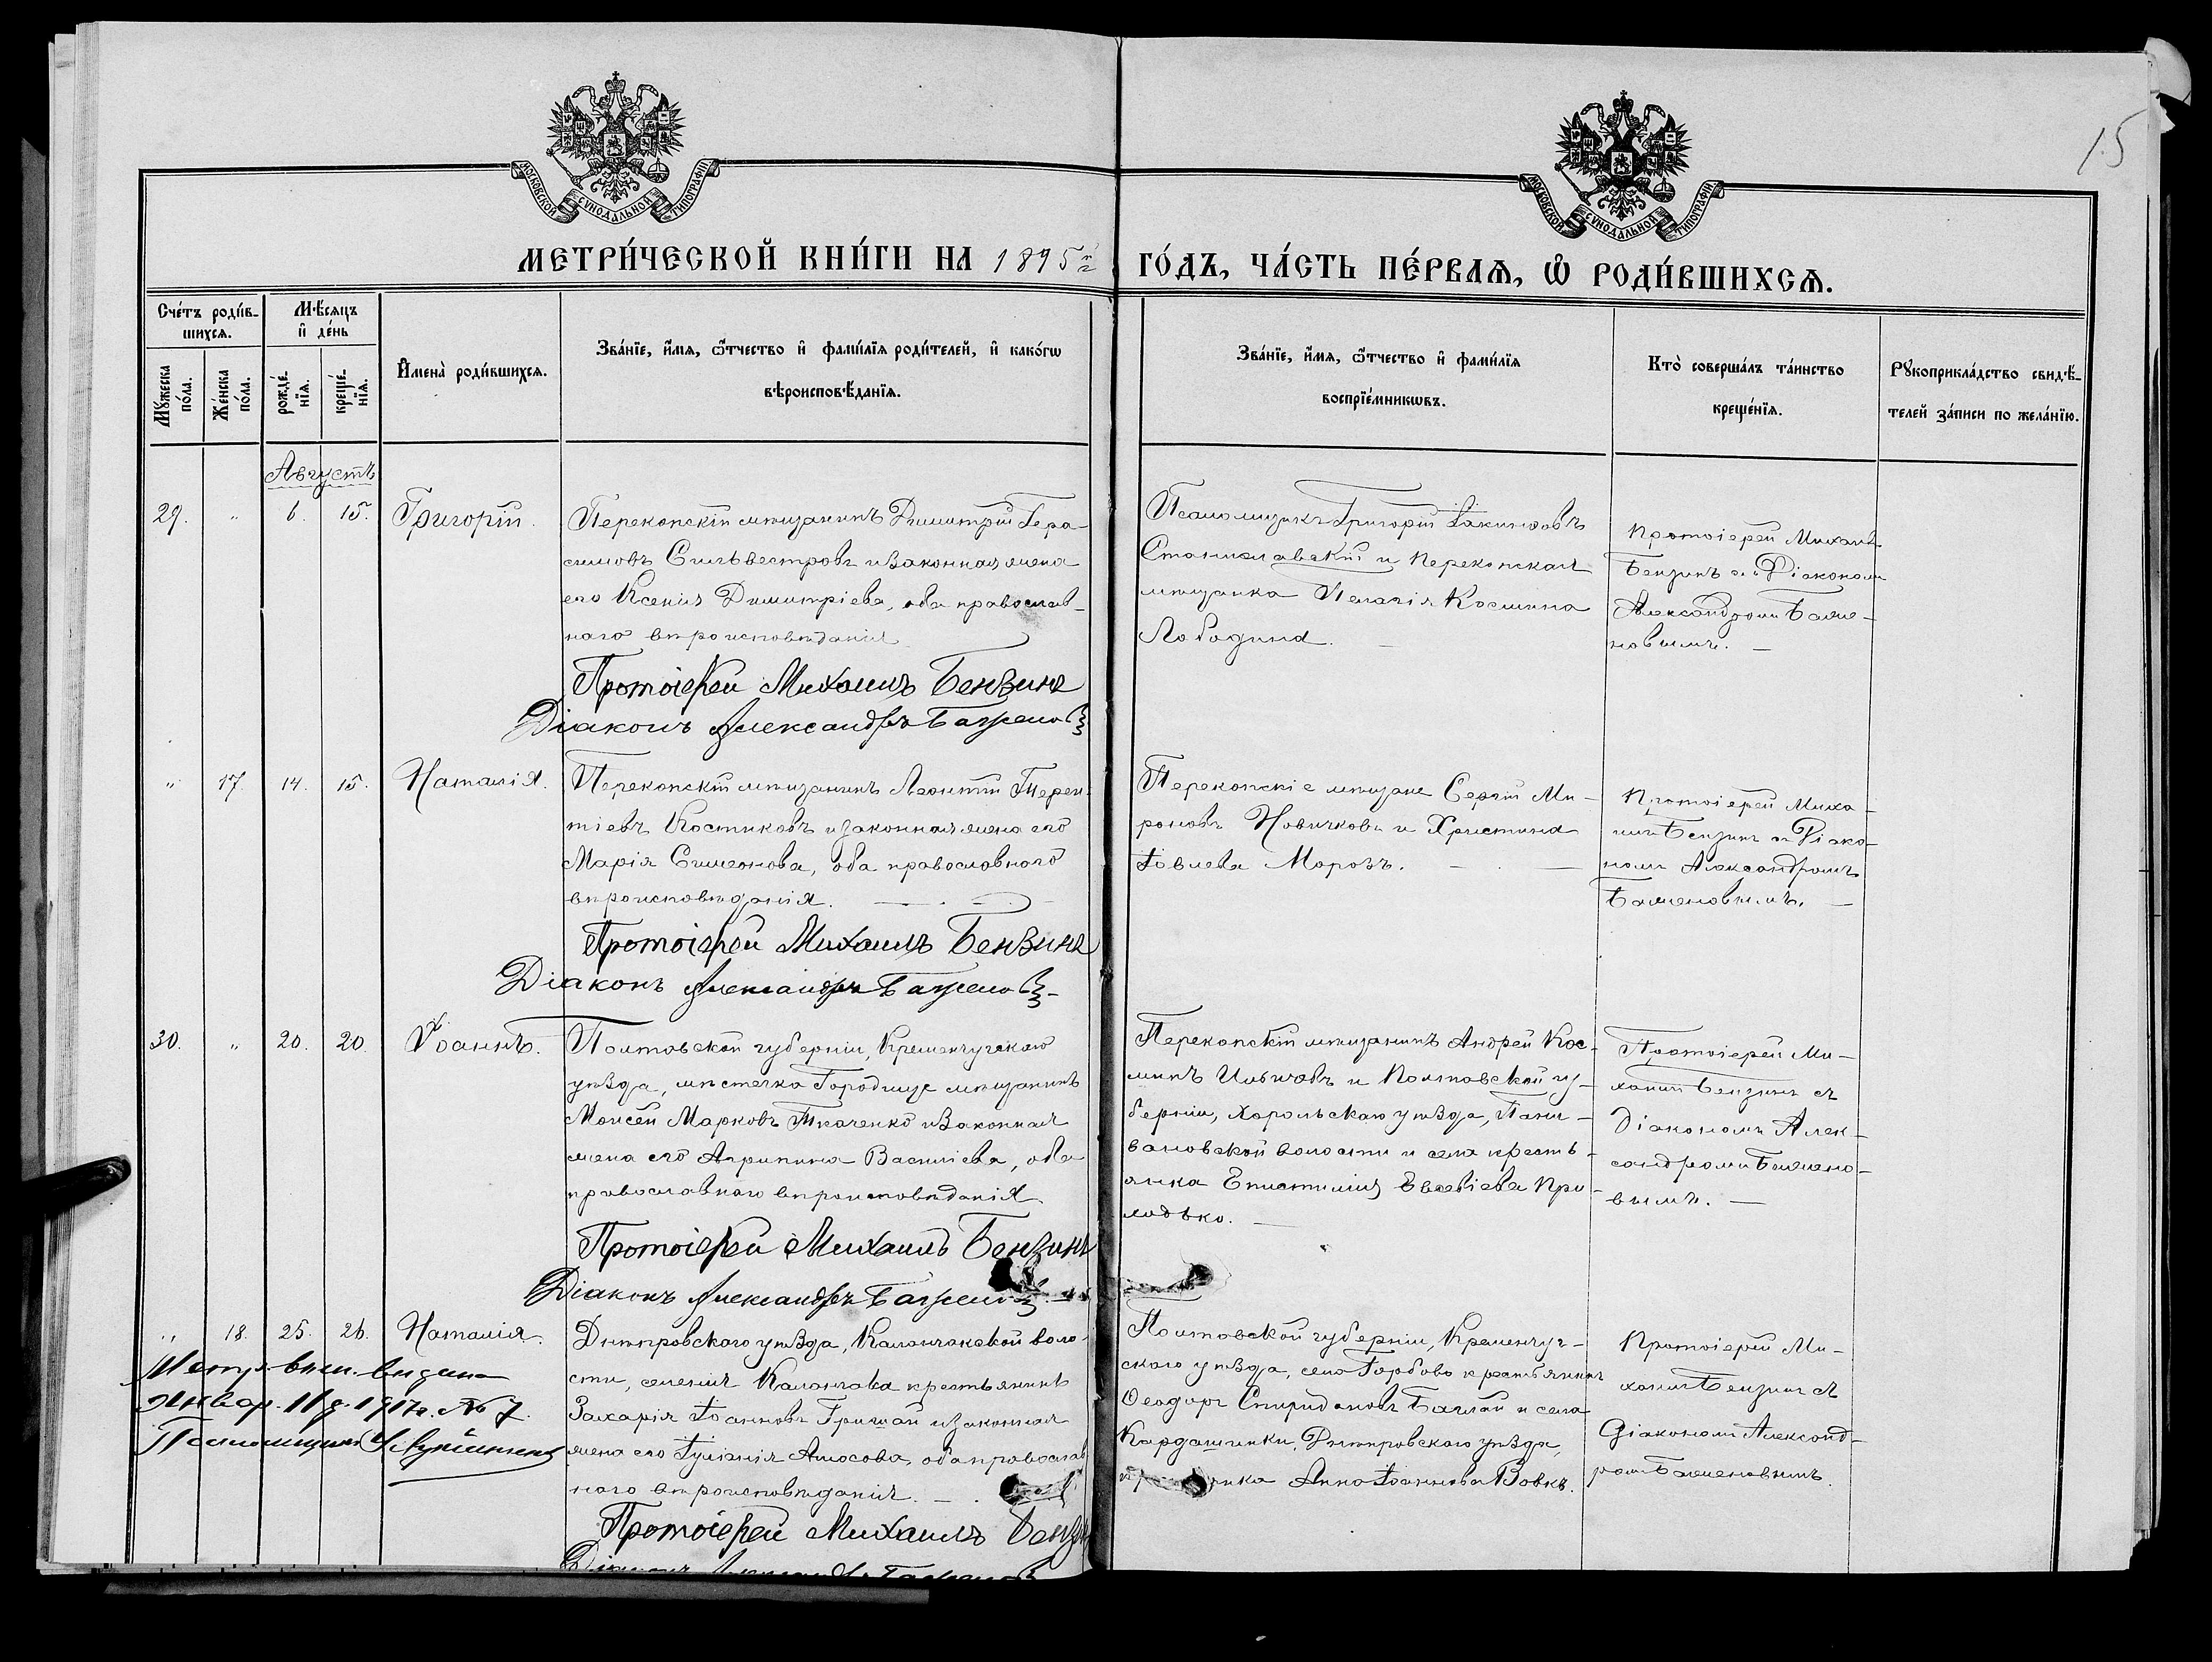 15
МОСКОВСКОЙ СУНОДАЛЬНОЙ ТИПОГРАФІИ
МОСКОВСКОЙ СУНОДАЛЬНОЙ ТИПОГРАФІИ
МЕТРИ́ЧЕСКОЙ КНИ́ГИ НА 1895й ГО́ДЪ, ЧА́СТЬ ПЕ́РВАѦ, Ѡ҆ РОДИ́ВШИХСѦ.
Сче́тъ роди́в-
шихсѧ.
Мꙋ́жеска по́ла.
Же́нска по́ла.
Мѣ́сѧцъ
и҆ де́нь
рожде́-
нїѧ.
креще́-
нїѧ.
И҆мена̀ роди́вшихсѧ.
Зва́нїе, и҆́мѧ, ѻ҆́тчество и҆ фами́лїѧ роди́телей, и҆ како́гѡ
вѣроисповѣ́данїѧ.
Зва́нїе, и҆́мѧ, ѻ҆́тчество и҆ фами́лїѧ
воспрїе́мникѡвъ.
Кто̀ соверша́лъ та́инство
креще́нїѧ.
Рꙋкоприкла́дство свидѣ́-
телей за́писи по жела́нїю.
Августъ
29. " 6. 15. Григорій.
Перекопскій мѣщанинъ Димитрій Гера-
симовъ Сильвестровъ и законная жена
его Ксенія Димитріева, оба православ-
наго вѣроисповѣданія
Протоіерей Михаилъ Бензинъ
Діаконъ Александръ Баженовъ
Псаломщикъ Григорій Іакинѳовъ
Станиславскій и Перекопская
мѣщанка Пелагія Космина
Лободина.
Протоіерей Михаилъ
Бензинъ съ Діакономъ
Александромъ Баже-
новымъ.
" 17. 14. 15. Наталія.
Перекопскій мѣщанинъ Леонтій Терен-
тіевъ Костиковъ и законная жена его
Марія Симеонова, оба православного
вѣроисповѣданія.
Протоіерей Михаилъ Бензинъ
Діаконъ Александръ Баженовъ
Перекопскіе мѣщане Сергій Ми-
роновъ Новичковъ и Христина
Іовлева Морозъ.
Протоіерей Миха-
илъ Бензинъ съ Діако-
номъ Александромъ
Баженовымъ.
30. " 20. 20. Іоаннъ.
Полтавской губерніи, Кременчугскаго
уѣзда, мѣстечка Городище мѣщанинъ
Моисей Марковъ Ткаченко и законная
жена его Агрипина Василіева, оба
православнаго вѣроисповѣданія
Протоіерей Михаилъ Бензинъ
Діаконъ Александръ Баженовъ
Перекопскій мѣщанинъ Андрей Кос-
минъ Ильичовъ и Полтавской гу-
берніи, Хорольскаго уѣзда, Пани-
вановской волости и села кресть-
янка Епистимія Евсевіева При-
лодько.
Протоіерей Ми-
хаилъ Бензинъ съ
Діакономъ Алек-
сандромъ Бажено-
вымъ.
" 18. 25. 26. Наталія.
Метр. вып. выдана
Январ. 11 д. 1917 г. № 7.
Псаломщикъ
Днѣпровскаго уѣзда, Каланчакской воло-
сти, селенія Каланчака крестьянинъ
Захарія Іоанновъ Гришай и законная
жена его Іуліанія Амосова, оба православ-
наго вѣроисповѣданія.
Протоіерей Михаилъ Бензинъ
Діаконъ Александръ Баженовъ
Полтавской губерніи, Кременчуг-
скаго уѣзда, села Горбово крестьянинъ
Ѳеодоръ Спиридоновъ Баглай и села
Кардашинки, Днѣпровскаго уѣзда,
Анна Іоаннова Вовкъ.
Протоіерей Ми-
хаилъ Бензинъ съ
Діакономъ Александ-
ромъ Баженовымъ.